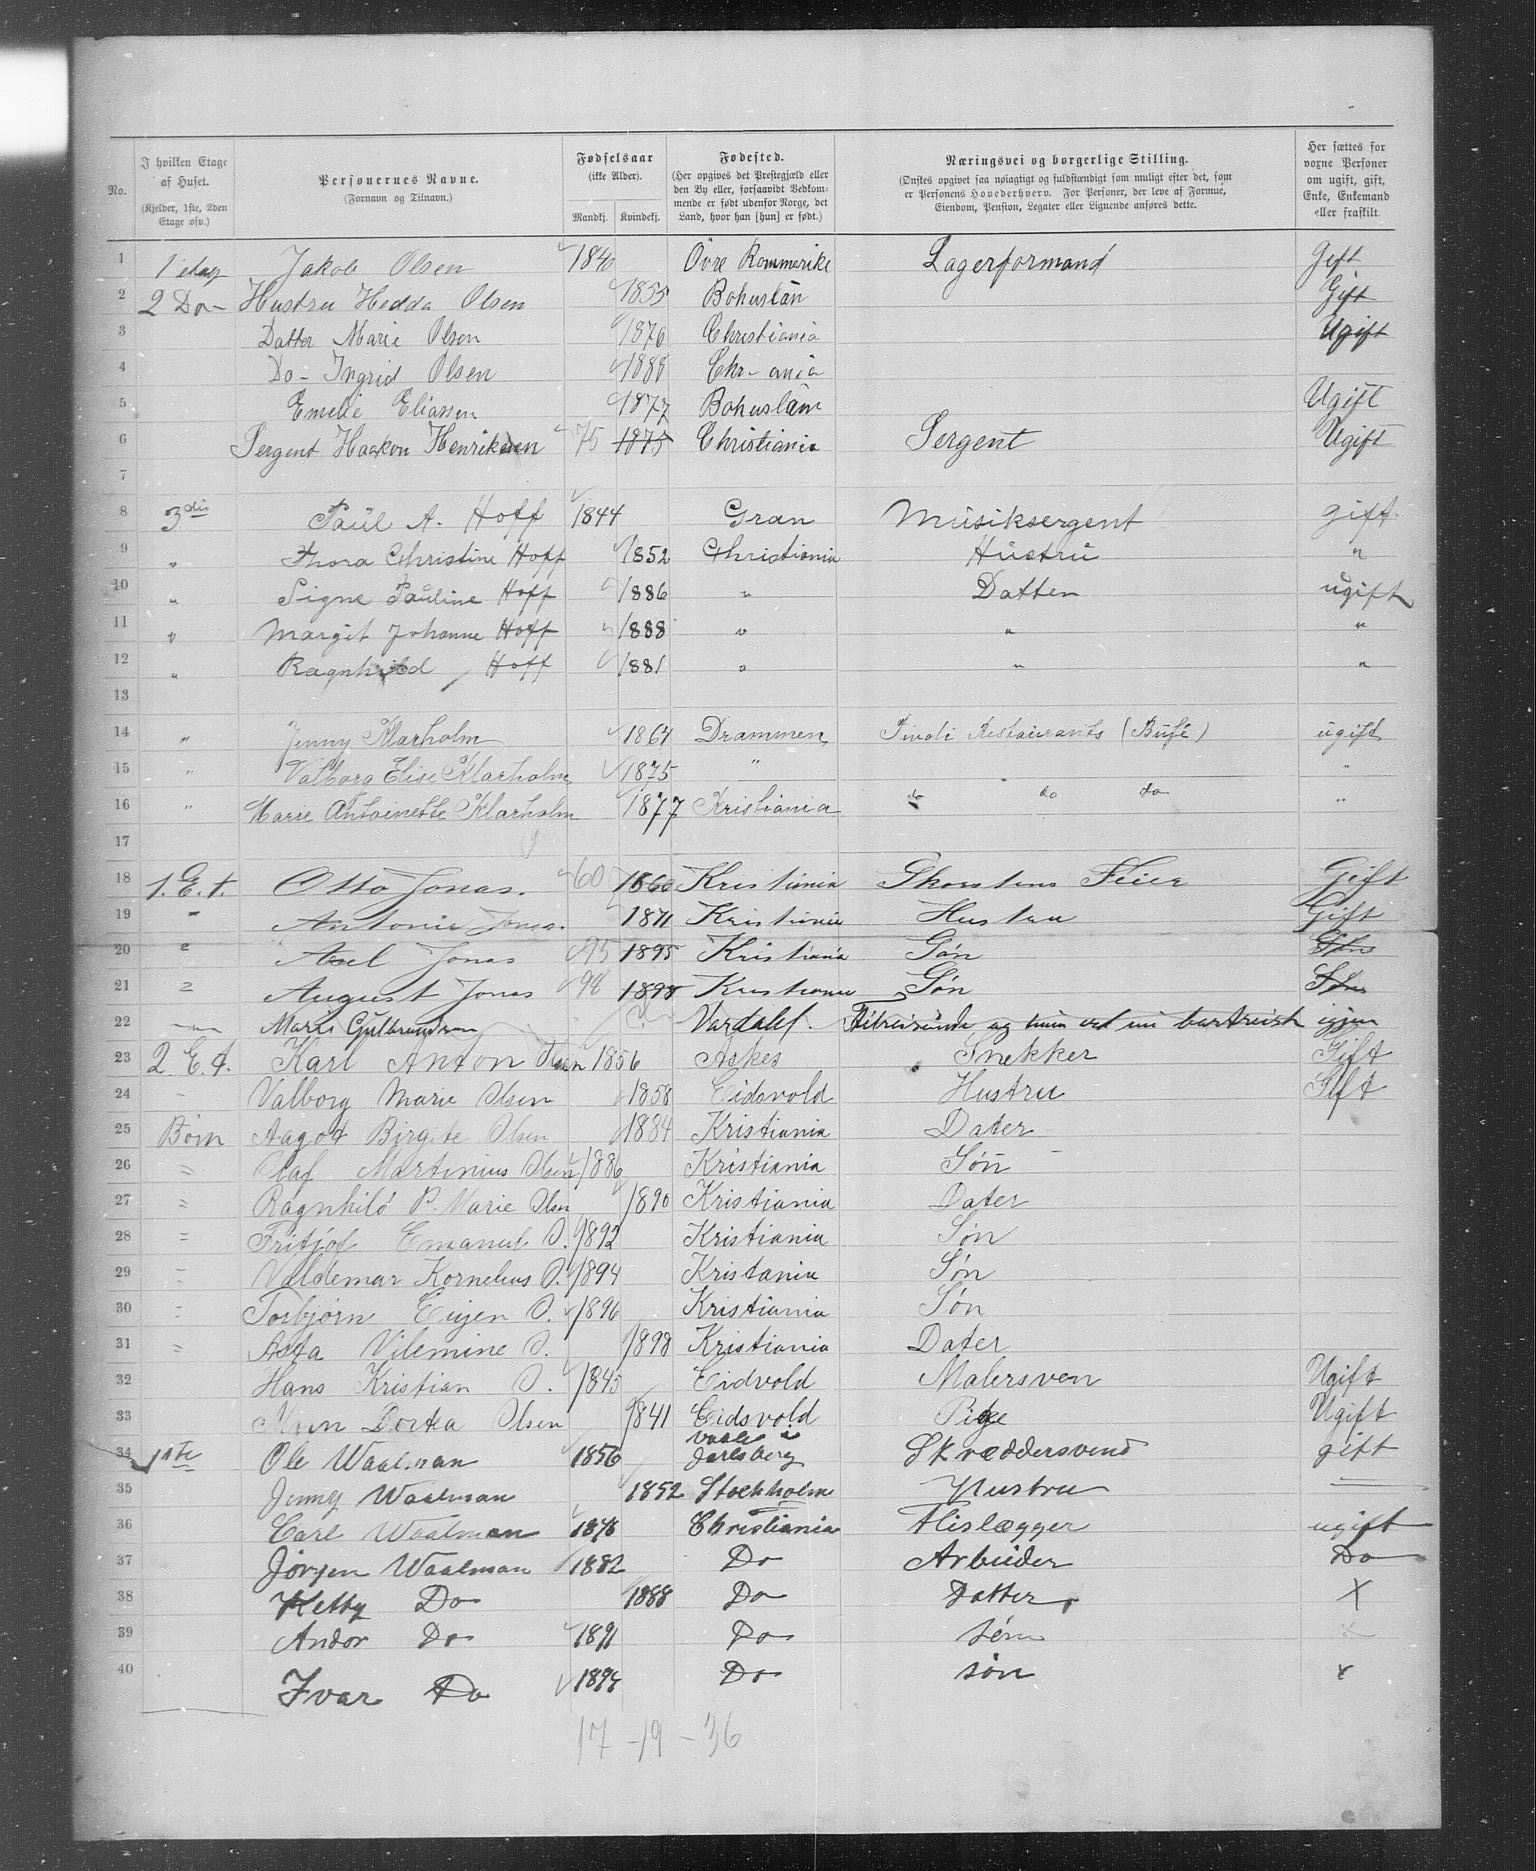 No. | I hvilken Etage af Huset. (Kjelder, 1ste, 2den Etage osv.) | Personernes Navne. (Fornavn og Tilnavn.) | Fødselsaar (ikke Alder). Mandkj. Kvindekj. | Fødested. (Her opgives det Prestegjæld eller den By eller, forsaavidt Vedkommende er født udenfor Norge, det Land, hvor han [hun] er født.) | Næringsvei og borgerlige Stilling. (Ønskes opgivet saa nøiagtigt og fuldstændigt som muligt efter det, som er Personens Hovederhverv. For Personer, der leve af Formue, Eiendom, Pension, Legater eller Lignende anføres dette. | Her sættes for voxne Personer om ugift, gift, Enke, Enkemand eller fraskilt.
1 1 etag Jakob Olsen 1840 Övre Rommerike Lagerformand Gift
2 2 Do- Hustru Hedda Olsen 1855 Bohuslän Gift
3 Datter Marie Olsen 1876 Christiania Ugift
4 Do- Ingrid Olsen 1888 Chr-ania
5 Emelie Eliassen 1877 Bohuslän Ugift
6 Sergent Haakon Henriksen 75 1875 Christiania Sergent Ugift
7
8 3die Paul A. Hoff 1844 Gran Musiksergent gift
9 " Thora Christine Hoff 1852 Christiania Hustru "
10 " Signe Pauline Hoff 1886 " Datter ugift
11 " Margit Johanne Hoff 1888 " " "
12 " Ragnhild Hoff 1881 " " "
13
14 " Jenny Klarholm 1864 Drammen Tivoli Restaurants (Bufé) ugift
15 " Valborg Elise Klarholm 1875 " "
16 " Marie Antoinette Klarholm 1877 Kristiania do do do "
17
18 1. Et. Otto Jonas. 60 1860 Kristiania Skorstens Feier Gift
19 " Antonie Jonas. 1871 Kristiania Hustru Gift
20 " Axel Jonas 95 1895 Kristiania Søn
21 " August Jonas 98 1898 Kristiania Søn
22 Marie Gulbrandsen Vardalef. og igjen
23 2. Et. Karl Anton Olsen 1856 Askes Snekker Gift
24 - Valborg Marie Olsen 1858 Eidsvold Hustru Gift
25 Börn Aagot Birgite Olsen 1884 Kristiania Dater
26 " Olaf Martinius Olsen 1886 Kristiania Søn
27 " Ragnhild P. Marie Olsen 1890 Kristiania Dater
28 " Fritjof Emanuel O. 1892 Kristiania Søn
29 " Valdemar Kornelius O. 1894 Kristania Søn
30 " Torbjørn Eugen O. 1896 Kristiania Søn
31 " Asta Vilemine O. 1898 Kristiania Dater
32 Hans Kristian O. 1845 Eidvold Malersven Ugift
33 Dortea Olsen 1841 Eidsvold Pige Ugift
34 1ste Ole Waalman 1856 Vaale i Jarlsberg Skræddersvend gift
35 Jenny Waalman 1852 Stockholm Hustru
36 Carl Waalman 1878 Christiania Flislægger ugift
37 Jörgen Waalman 1882 Do Arbeider Do
38 Ketty Do 1888 Do Datter x
39 Andor Do 1891 Do søn x
40 Ivar Do 1894 Do søn x
17 - 19 - 36